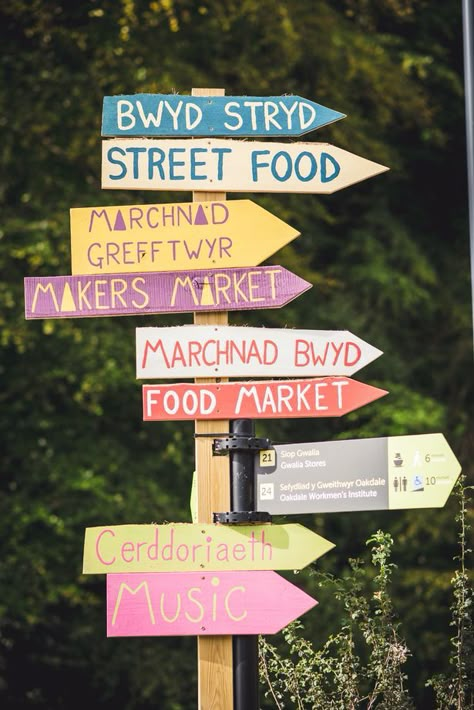 BWYD STRYD
STREET FOOD
MARCHNAD
GREFFTWYR
MAKERS MARKET
MARCHNAD BWYD
FOOD MARKET
21
Siop Gwalia
Gwalia Stores
6
24
Sefydliad y Gweithwyr Oakdale
Oakdale Workmen's Institute
10
Cerddoriaeth
Music